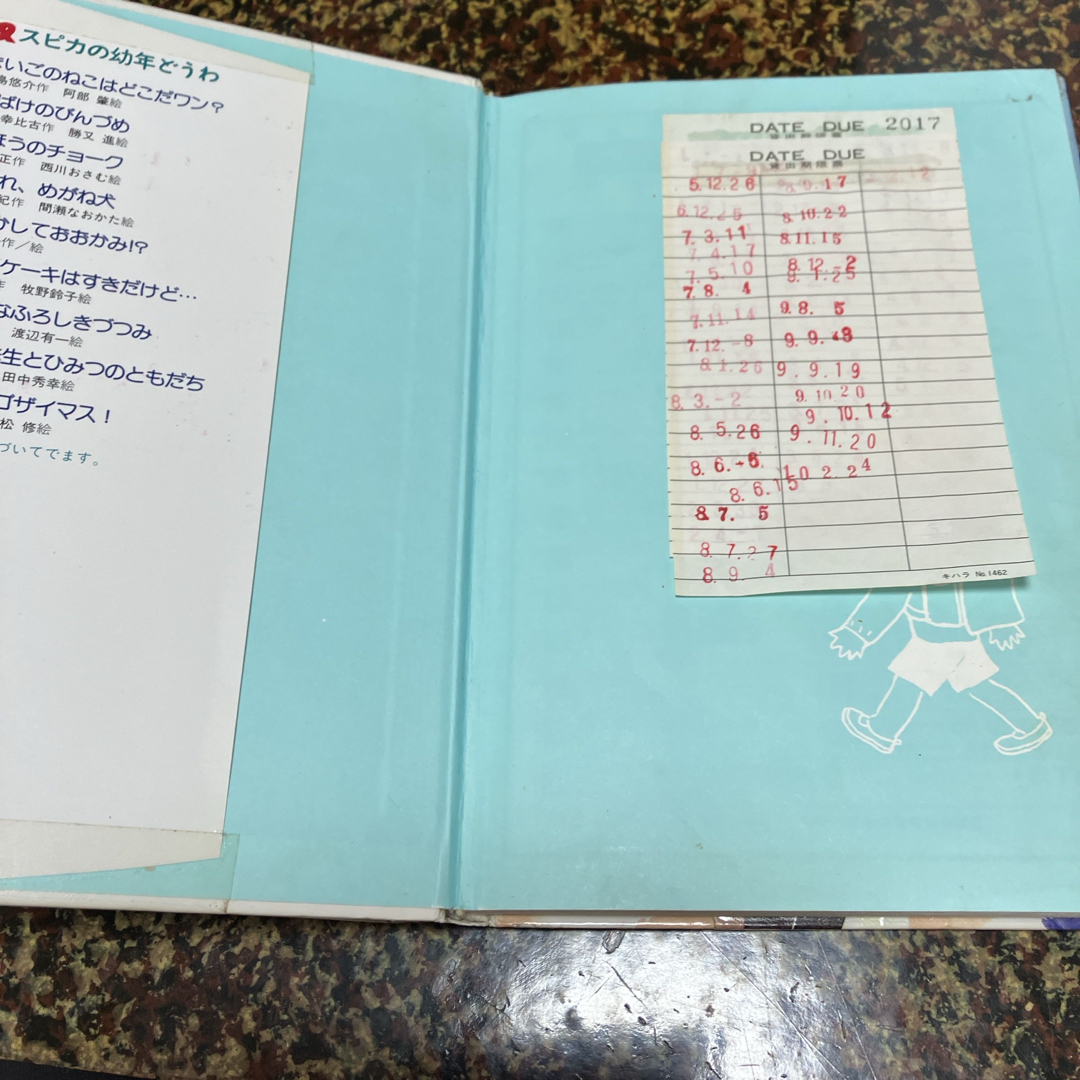 スピカの幼年どうわ
いごのねこはどこだワン?
島悠介作 阿部 肇絵
ばけのびんづめ
幸比古作 勝又 進絵
ほうのチョーク
正作 西川おさむ絵
れ、めがね犬
紀作 間瀬なおかた絵
かしておおかみ!?
作/絵
ケーキはすきだけど…
作 牧野鈴子絵
なふろしきづつみ
渡辺有一絵
生とひみつのともだち
田中秀幸絵
ゴザイマス!
松 修絵
づいてでます。
DATE DUE 2017
DATE DUE
貸出期限票
5.12.26
6.12.25
7. 3.11
7. 4.17
7. 5.10
7. 8. 4
7.11.14
7.12.-8
8.1.26
8. 3.-2
8. 5.26
8. 6.-6
8. 6.15
8. 7. 5
8. 7.27
8. 9. 4
8.9.17
8.10.22
8.11.15
8. 12.-2
9. 1.25
9. 8. 5
9. 9.-8
9. 9.19
9. 10 20
9. 10.12
9. 11.20
10 2.24
キハラ No.1462